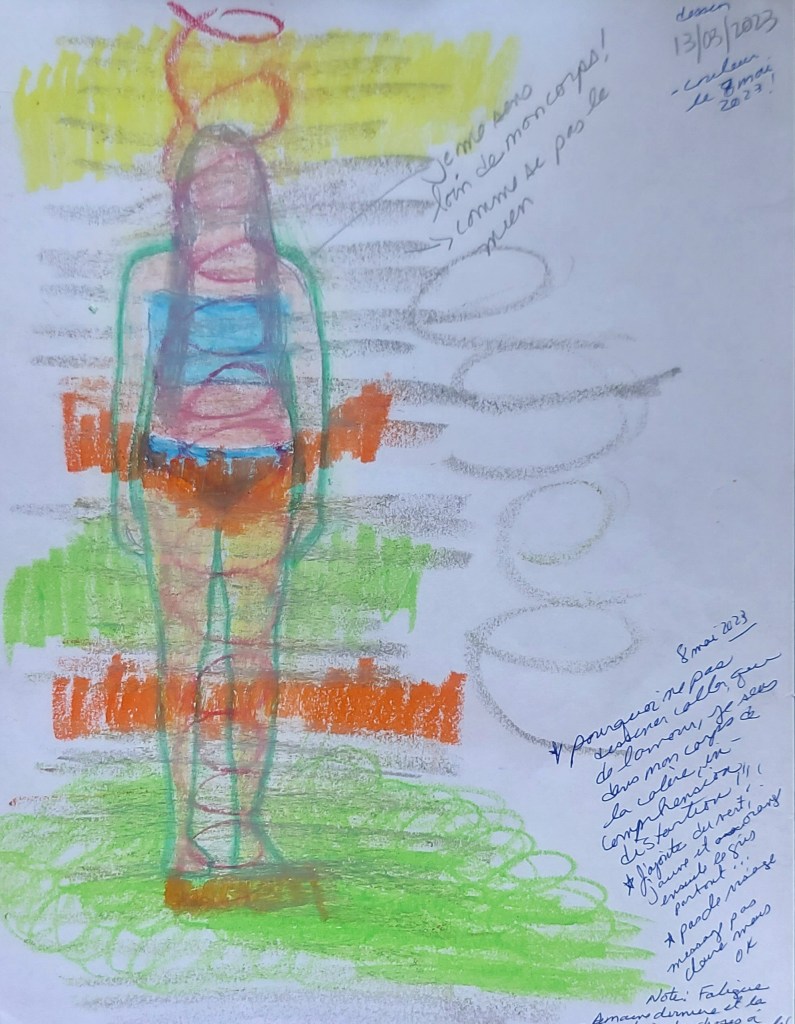 dessin
13/03/2023
- couleur
le 8 mai
2023!
Je me sens
loin de mon corps!
-> comme se pas le
mien
8 mai 2023
* pourquoi ne pas
dessiner
de l'amour, je sens
dans mon corps de
la colère, in-
compréhension,
distortion!!!
* J'ajoute du vert,
jaune et orange
ensuite le gris
partout!!!
* pas de visage
message pas
claire mais
OK
Note: Fatigue
semaine dernière et la